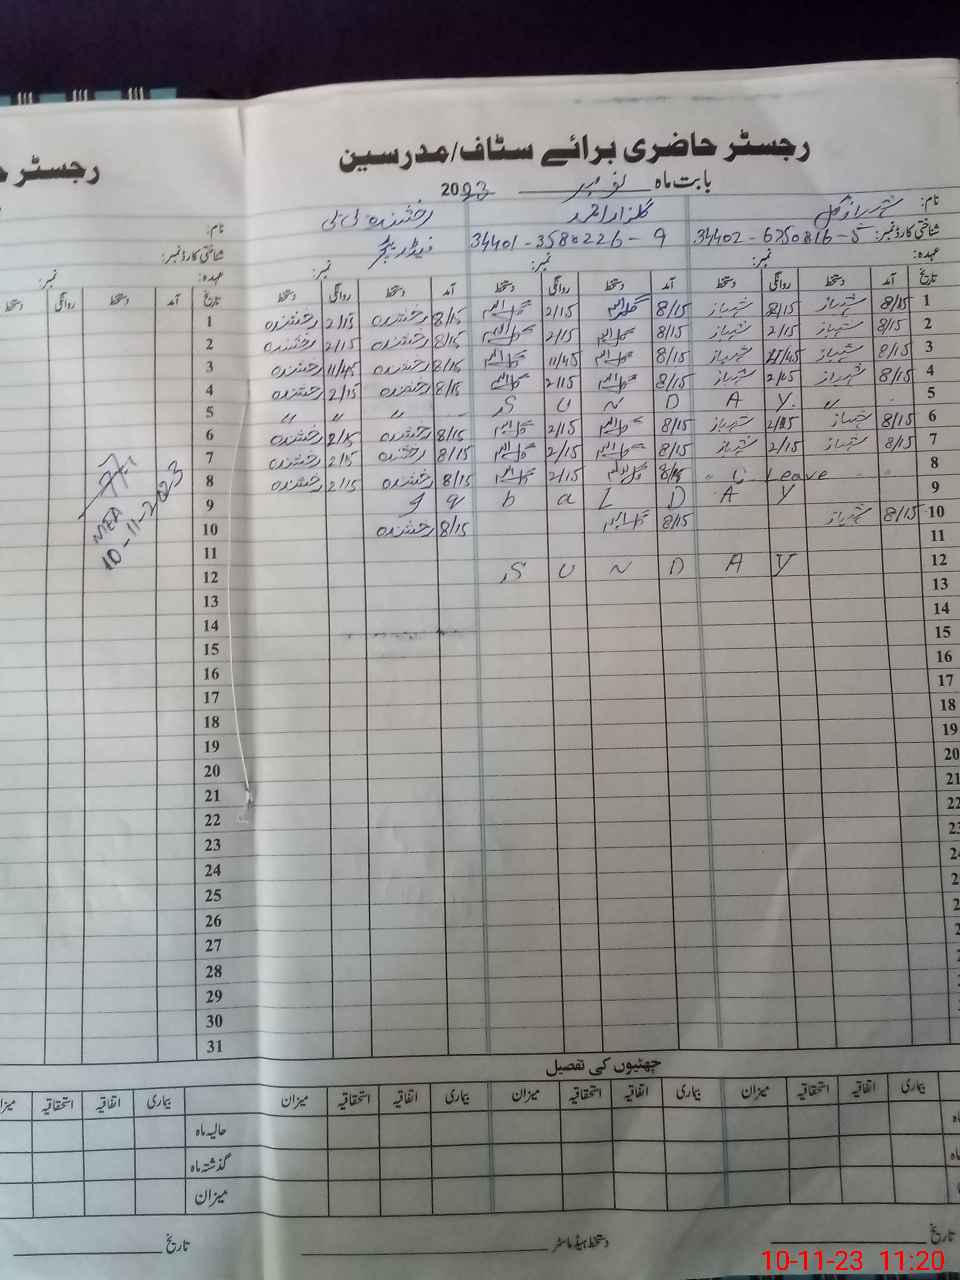 رجسٹر حاضری برائے سٹاف/مدرسین
بابت ماہ نومبر 2023
نام: شہراز گل گلزار احمد رخشندہ بی بی
شناختی کارڈ نمبر: 34402-6750816-5 34401-3580226-9
عہدہ: نمبر: نمبر: نمبر:
تاریخ آمد دستخط روانگی دستخط آمد دستخط روانگی دستخط آمد دستخط روانگی دستخط
1 8/15 شہراز 2/15 شہراز 8/15 2/15 8/15 رخشندہ 2/15 رخشندہ
2 8/15 شہراز 2/15 شہراز 8/15 2/15 8/15 رخشندہ 2/15 رخشندہ
3 8/15 شہراز 11/45 شہراز 8/15 11/45 8/15 رخشندہ 11/45 رخشندہ
4 8/15 شہراز 2/15 شہراز 8/15 2/15 8/15 رخشندہ 2/15 رخشندہ
5 S U N D A Y
6 8/15 شہراز 2/15 شہراز 8/15 2/15 8/15 رخشندہ 2/15 رخشندہ
7 8/15 شہراز 2/15 شہراز 8/15 2/15 8/15 رخشندہ 2/15 رخشندہ
8 Leave 8/15 2/15 8/15 رخشندہ 2/15 رخشندہ
9 I q b a L D A Y
10 8/15 شہراز 8/15 8/15 رخشندہ
11
12 S U N D A Y
13
14
15
16
17
18
19
20
21
22
23
24
25
26
27
28
29
30
31
چھٹیوں کی تفصیل
بیماری اتفاقیہ استحقاقیہ میزان بیماری اتفاقیہ استحقاقیہ میزان بیماری اتفاقیہ استحقاقیہ میزان
تاریخ
دستخط ہیڈ ماسٹر
رجسٹر
نام:
شناختی کارڈ نمبر:
عہدہ: نمبر:
تاریخ آمد دستخط روانگی دستخط
MEA
10-11-2023
بیماری اتفاقیہ استحقاقیہ
حالیہ ماہ
گذشتہ ماہ
میزان
تاریخ
10-11-23 11:20